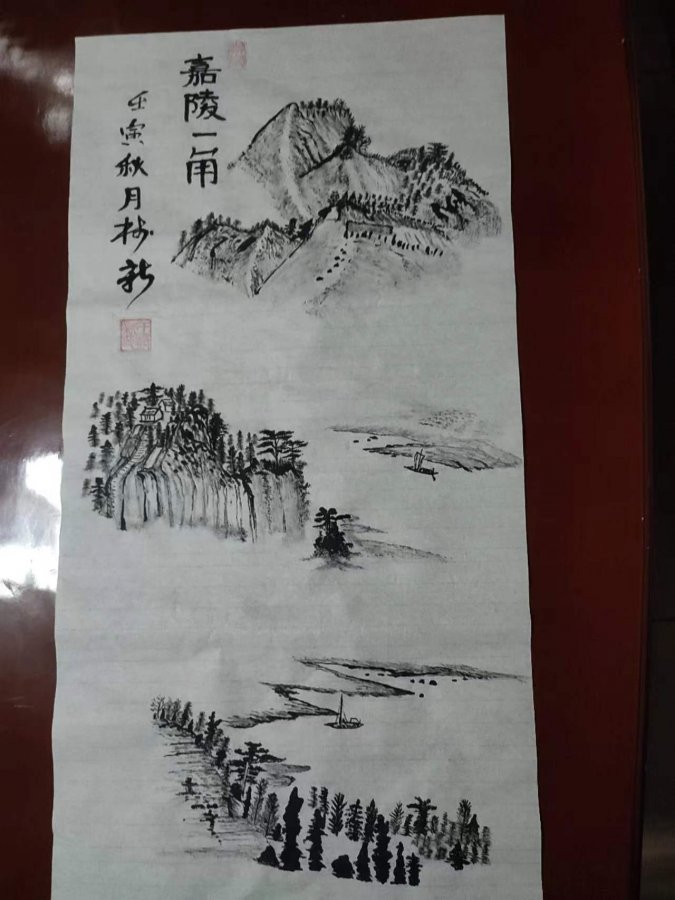 嘉陵一角
壬寅秋月树新